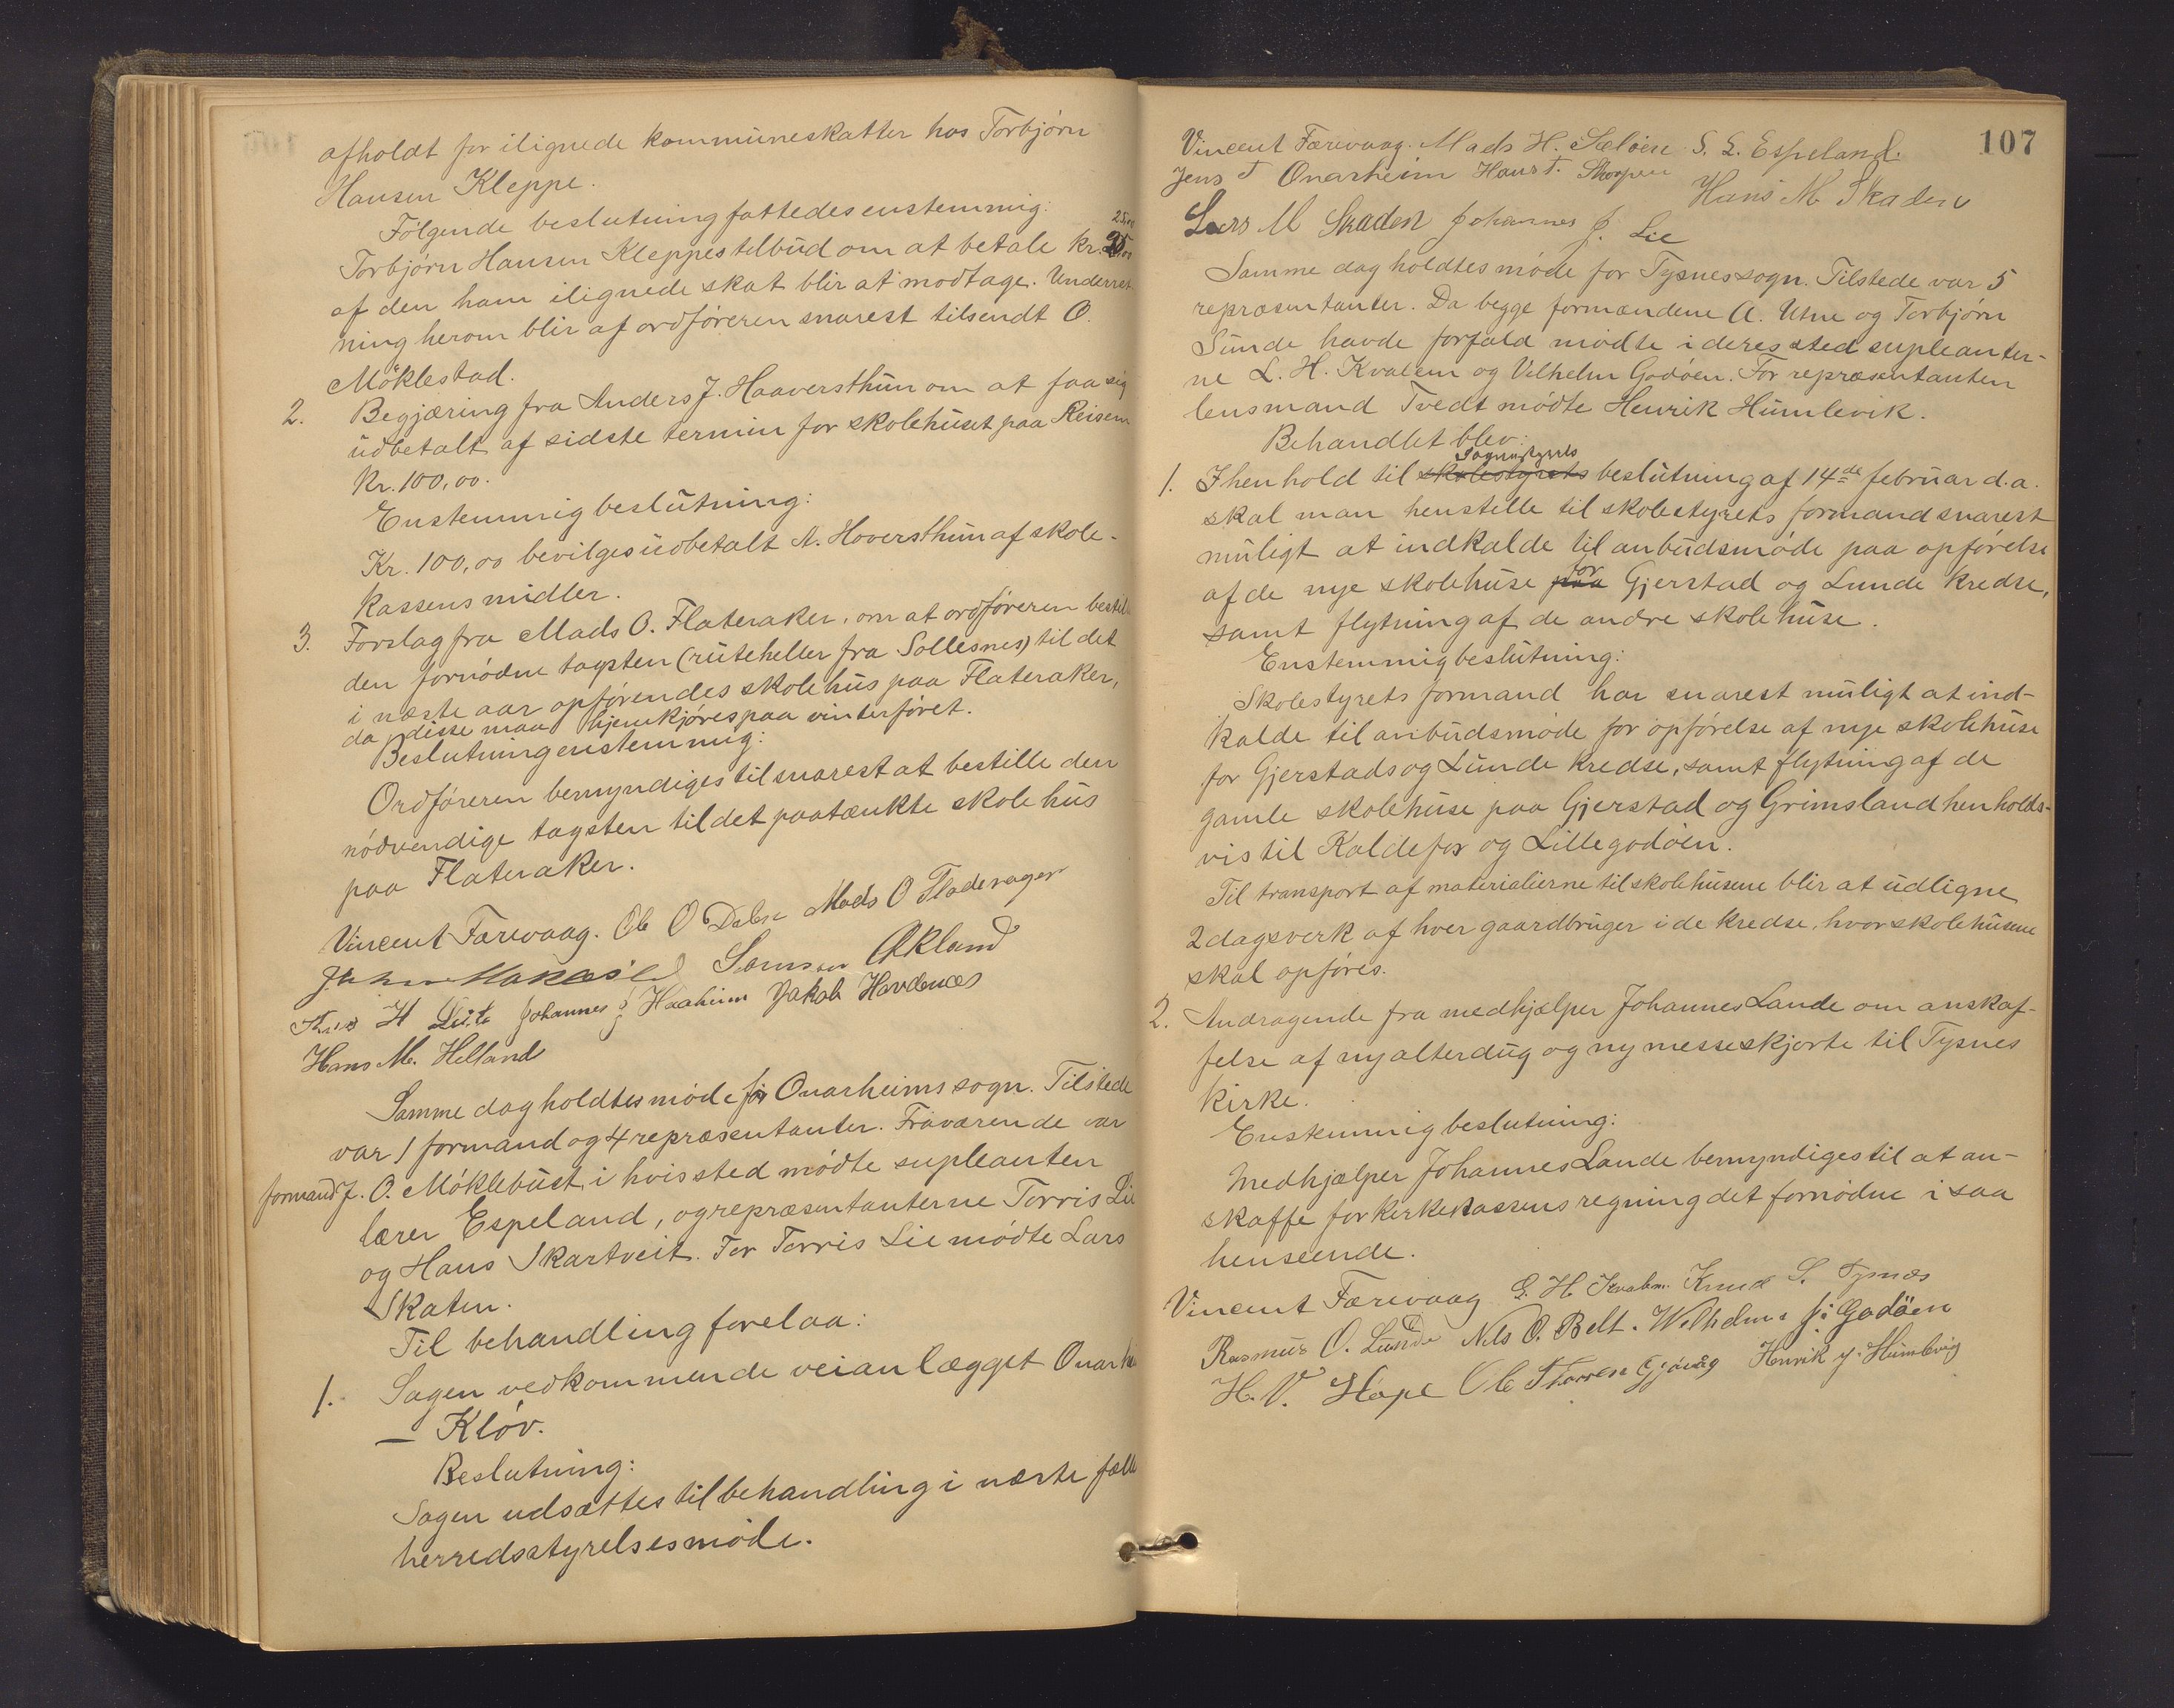 afholdt for ilignede kommuneskatter hos Torbjørn
Hansen Kleppe.
Følgende beslutning fattedes enstemmig:
25,00
Torbjørn Hansen Kleppes tilbud om at betale kr.
af den ham ilignede skat blir at modtage. Underret-
ning herom blir af ordføreren snarest tilsendt O.
Møklestad.
2. Begjæring fra Anders J. Haaversthun om at faa sig
udbetalt af sidste termin for skolehuset paa Reisem
kr. 100,00.
Enstemmig beslutning:
Kr. 100,00 bevilges udbetalt A. Hoversthun af skole-
kassens midler.
3. Forslag fra Mads O. Flateraker, om at ordføreren bestil
den fornødne tagsten (rüteheller fra Sollesnes) til det
i næste aar opførendes skolehus paa Flateraker,
da disse maa hjemkjøres paa vinterføret.
Beslutning enstemmig:
Ordføreren bemyndiges til snarest at bestille den
nødvendige tagsten til det paatænkte skolehus
paa Flateraker.
Vincent Færevaag. Ole O Dalen Mads O Fladerager
John Samson Økland
H Johannes J Haaheim Jakob Hovdenæs
Hans M. Helland
Samme dag holdtes møde for Onarheims sogn. Tilstede
var 1 formand og 4 repræsentanter. Fraværende var
formand J. O. Møklebust, i hvis sted mødte supleanten
lærer Espeland, og repræsentanterne Torris Lie
og Hans Skartveit. For Torris Lie mødte Lars
Skaten.
Til behandling forelaa:
1. Sagen vedkommende veianlægget Onarhei
– Kløv.
Beslutning:
Sagen udsættes til behandling i næste fælle
herredsstyrelsesmøde.
107
Vincent Færevaag. Mads H. Sæløen S. L. Espeland.
Jens T Onarheim Hans T. Skorpen
Hans M Skaden
Lars M Skaden Johannes J. Lie
Samme dag holdtes møde for Tysnes sogn. Tilstede var 5
repræsentanter. Da begge formændene A. Utne og Torbjørn
Sunde havde forfald mødte i deres sted supleanter-
ne L. H. Kvalem og Vilhelm Godøen. For repræsentanten
lensmand Tvedt mødte Henrik Humlevik.
Behandlet blev:
Sognestyrets
1. I henhold til skolestyrets beslutning af 14de februar d.a.
skal man henstille til skolestyrets formand snarest
muligt at indkalde til anbudsmøde paa opførelse
for
af de nye skolehuse paa Gjerstad og Lunde kredse,
samt flytning af de andre skolehuse.
Enstemmig beslutning:
Skolestyrets formand har snarest muligt at ind-
kalde til anbudsmøde for opførelse af nye skolehuse
for Gjerstads og Lunde kredse, samt flytning af de
gamle skolehuse paa Gjerstad og Grimsland henholds-
vis til Kaldefos og Lillegodøen.
Til transport af materialierne til skolehusene blir at udligne
2 dagsverk af hver gaardbruger i de kredse, hvor skolehusene
skal opføres.
2. Andragende fra medhjælper Johannes Lande om anskaf-
felse af ny alterdug og ny messeskjorte til Tysnes
kirke.
Enstemmig beslutning:
Medhjælper Johannes Lande bemyndiges til at an-
skaffe for kirkekassens regning det fornødne i saa
henseende.
Vincent Færevaag L. H. Kvalem. Knud S. Tysnes
Rasmus O. Lunde Nels O. Belt. Wilhelm J. Godöen
H. V. Hope Ole Thorsen Gjøvåg Henrik J. Humlevig